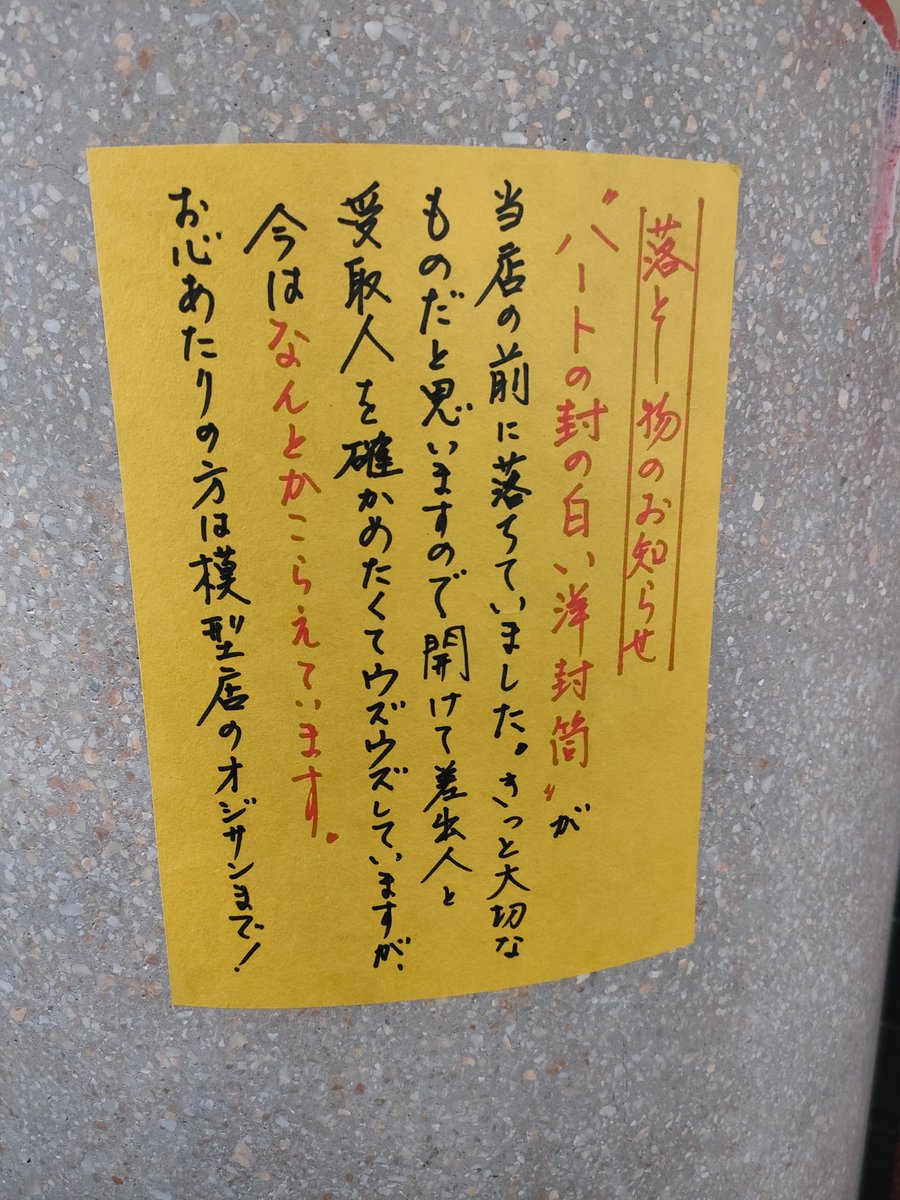 落とし物のお知らせ
"ハートの封の白い洋封筒"が
当店の前に落ちていました。きっと大切な
ものだと思いますので開けて差出人と
受取人を確かめたくてウズウズしていますが、
今はなんとかこらえています。
お心あたりの方は模型店のオジサンまで!